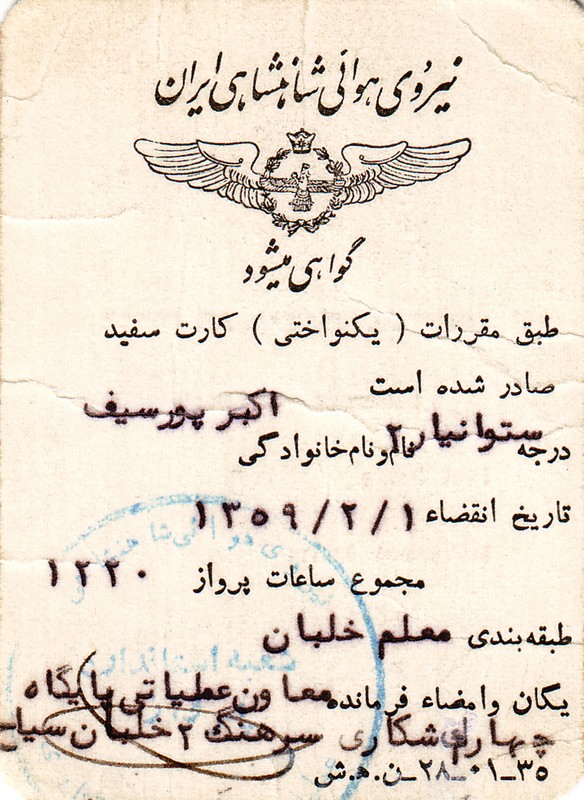 نیروی هوائی شاهنشاهی ایران
گواهی میشود
طبق مقررات ( یکنواختی ) کارت سفید
صادر شده است
درجه ستوانیار ۲ نام و نام خانوادگی اکبر پورسیف
تاریخ انقضاء ۱۳۵۹/۲/۱
مجموع ساعات پرواز ۱۲۲۰
طبقه‌بندی معلم خلبان
یگان و امضاء فرمانده معاون عملیاتی پایگاه
چهارم شکاری سرهنگ ۲ خلبان سیاح
۳۵_۰۱_۲۸_ن.ه.ش